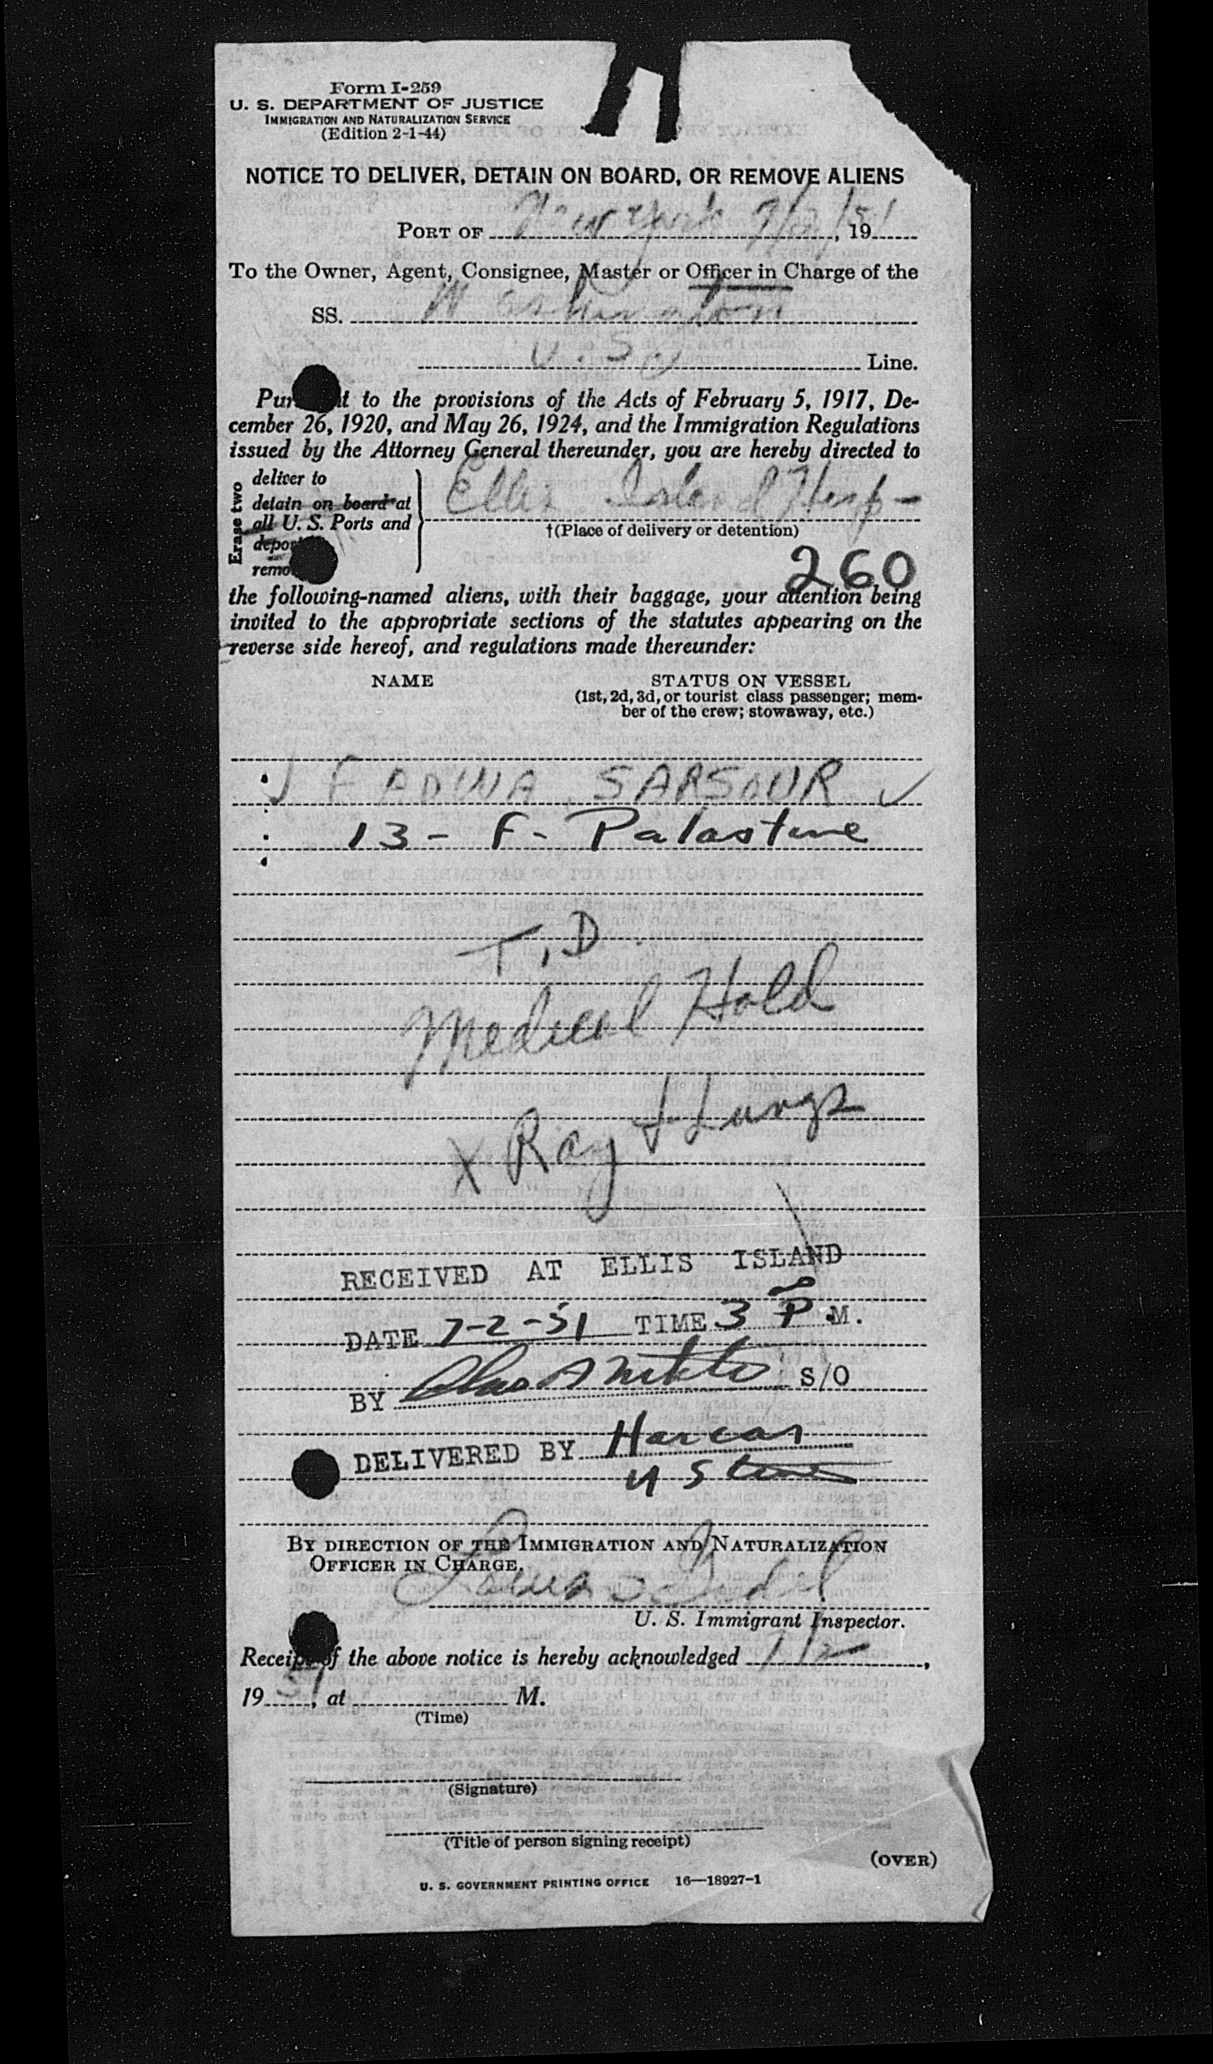 Form I-259
U. S. DEPARTMENT OF JUSTICE
IMMIGRATION AND NATURALIZATION SERVICE
(Edition 2-1-44)
NOTICE TO DELIVER, DETAIN ON BOARD, OR REMOVE ALIENS
PORT OF New York 7/2/51, 19
To the Owner, Agent, Consignee, Master or Officer in Charge of the
SS. Washington
U.S. Line.
Pur t to the provisions of the Acts of February 5, 1917, De-
cember 26, 1920, and May 26, 1924, and the Immigration Regulations
issued by the Attorney General thereunder, you are hereby directed to
Erase two
deliver to
detain on board at
all U. S. Ports and
depor
remo
Ellis Island Hosp-
†(Place of delivery or detention)
260
the following-named aliens, with their baggage, your attention being
invited to the appropriate sections of the statutes appearing on the
reverse side hereof, and regulations made thereunder:
NAME STATUS ON VESSEL
(1st, 2d, 3d, or tourist class passenger; mem-
ber of the crew; stowaway, etc.)
FADWA SARSOUR ✓
13 - F - Palastine
T.D.
Medical Hold
X Ray Lungs
RECEIVED AT ELLIS ISLAND
DATE 7-2-51 TIME 3 P.M.
BY S/O
DELIVERED BY
U S
BY DIRECTION OF THE IMMIGRATION AND NATURALIZATION
OFFICER IN CHARGE.
U. S. Immigrant Inspector.
Receipt of the above notice is hereby acknowledged 7/2,
1951, at M.
(Time)
(Signature)
(Title of person signing receipt)
(OVER)
U. S. GOVERNMENT PRINTING OFFICE 16—18927-1